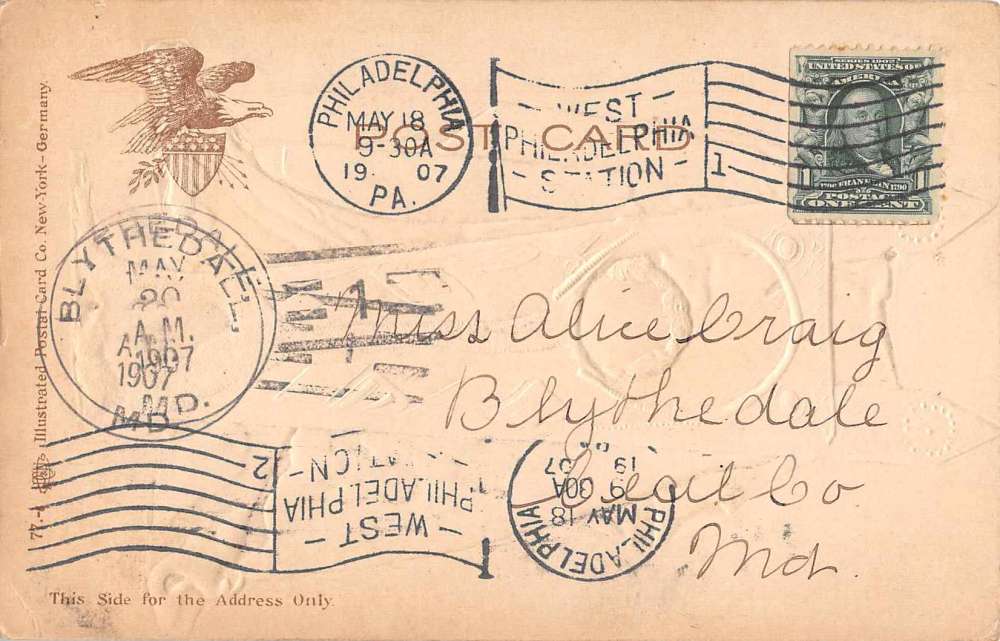 POST CARD
PHILADELPHIA
MAY 18
9-30A
19 07
PA.
WEST
PHILADELPHIA
STATION
1
SERIES 1902
UNITED STATES OF
AMERI
1706 FRANKLIN 1790
POSTAGE
1 ONE CENT 1
Illustrated Postal Card Co. New-York- Germany.
BLYTHEDALE,
MAY
20
A.M.
1907
MD.
1
Miss Alice Craig
Blythedale
Cecil Co
Md.
2
WEST
PHILADELPHIA
STATION
1
PHILADELPHIA
MAY 18
9 30A
19 07
This Side for the Address Only.